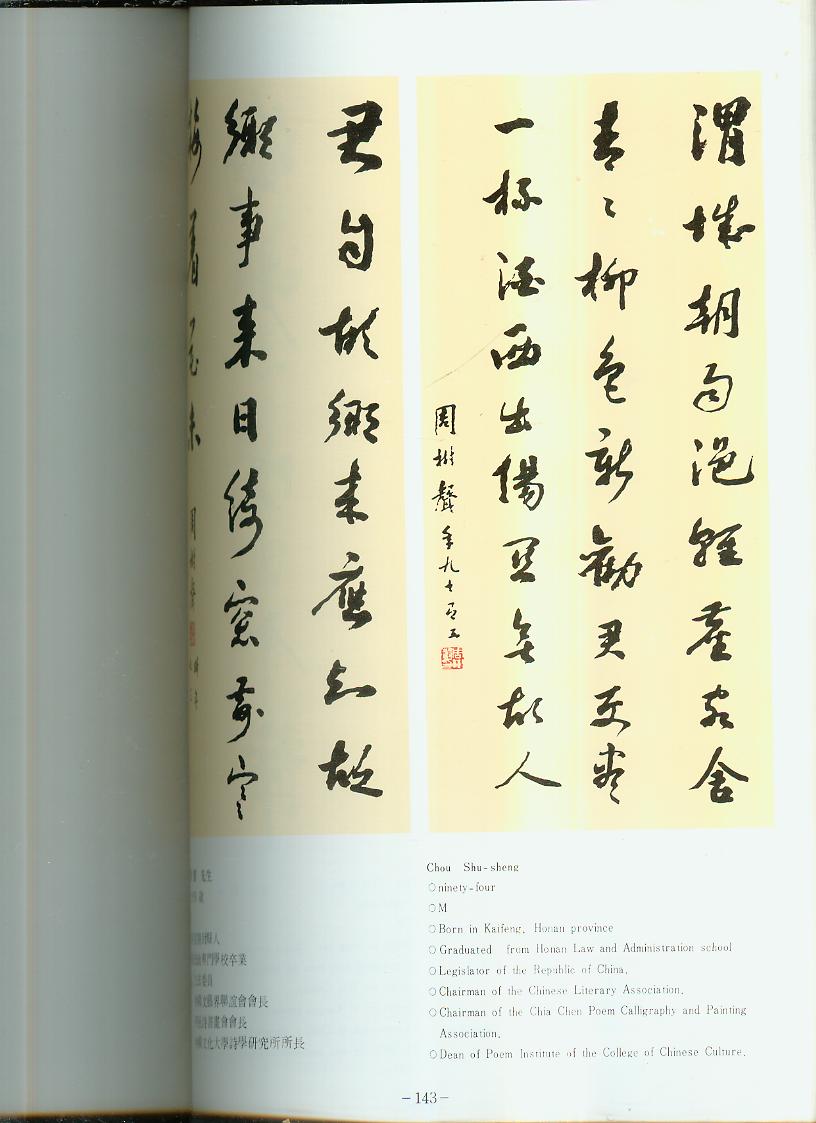 渭城朝雨浥輕塵客舍
青〻柳色新勸君更盡
一杯酒西出陽關無故人
周樹聲年九十有五
君自故鄉來應知故
鄉事來日綺窗前寒
梅著花未 周樹聲
先生
歲
人
專門學校卒業
委員
文藝界聯誼會會長
詩書畫會會長
文化大學詩學研究所所長
Chou Shu-sheng
○ninety-four
○M
○Born in Kaifeng, Honan province
○Graduated from Honan Law and Administration school
○Legislator of the Republic of China.
○Chairman of the Chinese Literary Association.
○Chairman of the Chia Chen Poem Calligraphy and Painting
Association.
○Dean of Poem Institute of the College of Chinese Culture.
-143-